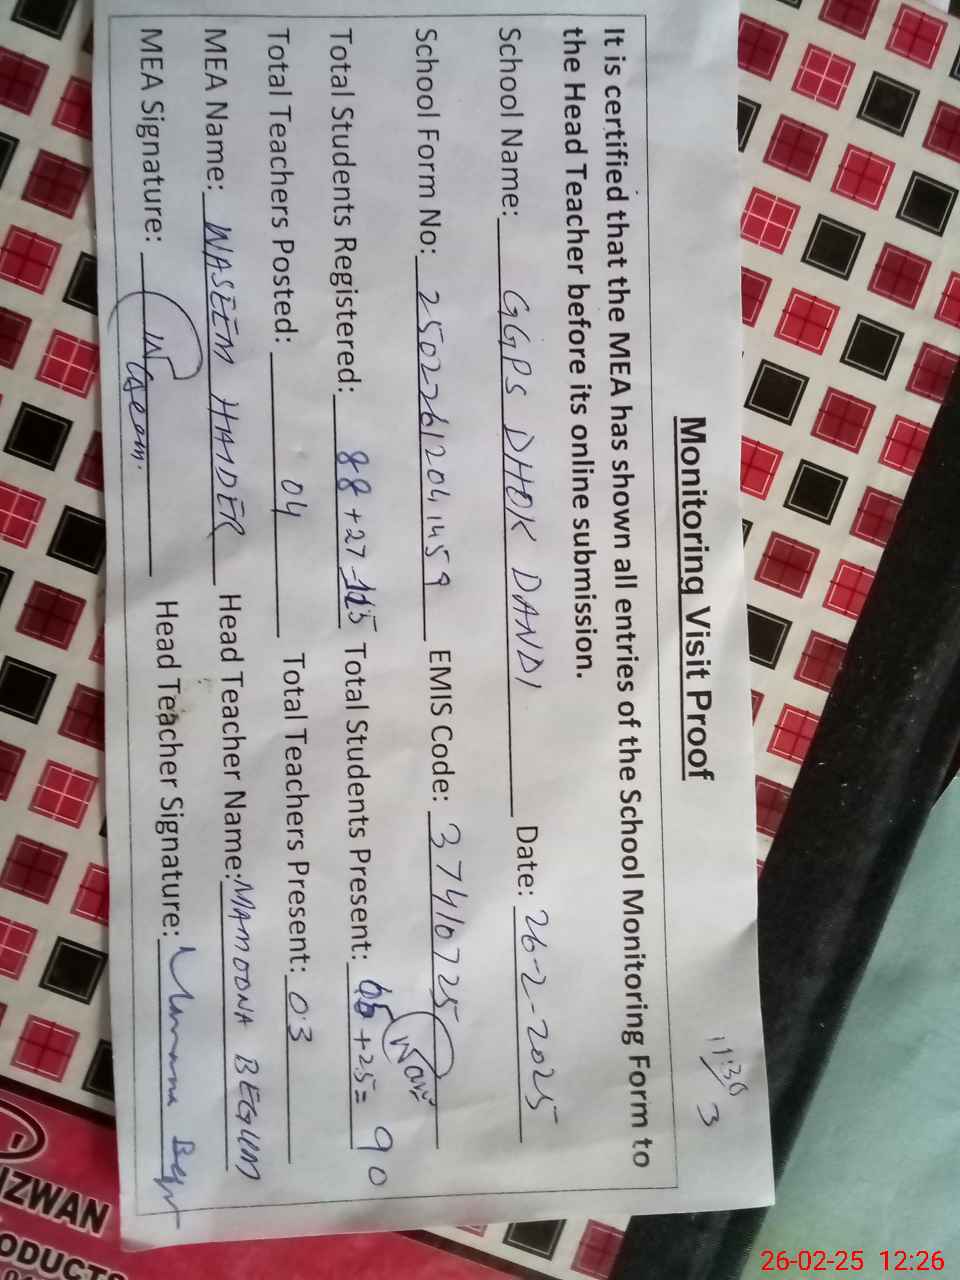 11:30
3
Monitoring Visit Proof
It is certified that the MEA has shown all entries of the School Monitoring Form to
the Head Teacher before its online submission.
School Name: GGPS DHOK DANDI Date: 26-2-2025
School Form No: 25022612041459 EMIS Code: 37410725
Total Students Registered: 88+27-115 Total Students Present: 65+25= 90
Total Teachers Posted: 04 Total Teachers Present: 03
MEA Name: WASEEM HAIDER Head Teacher Name: MAMOONA BEGUM
MEA Signature: Waseem. Head Teacher Signature:
IZWAN
ODUCTS
26-02-25 12:26